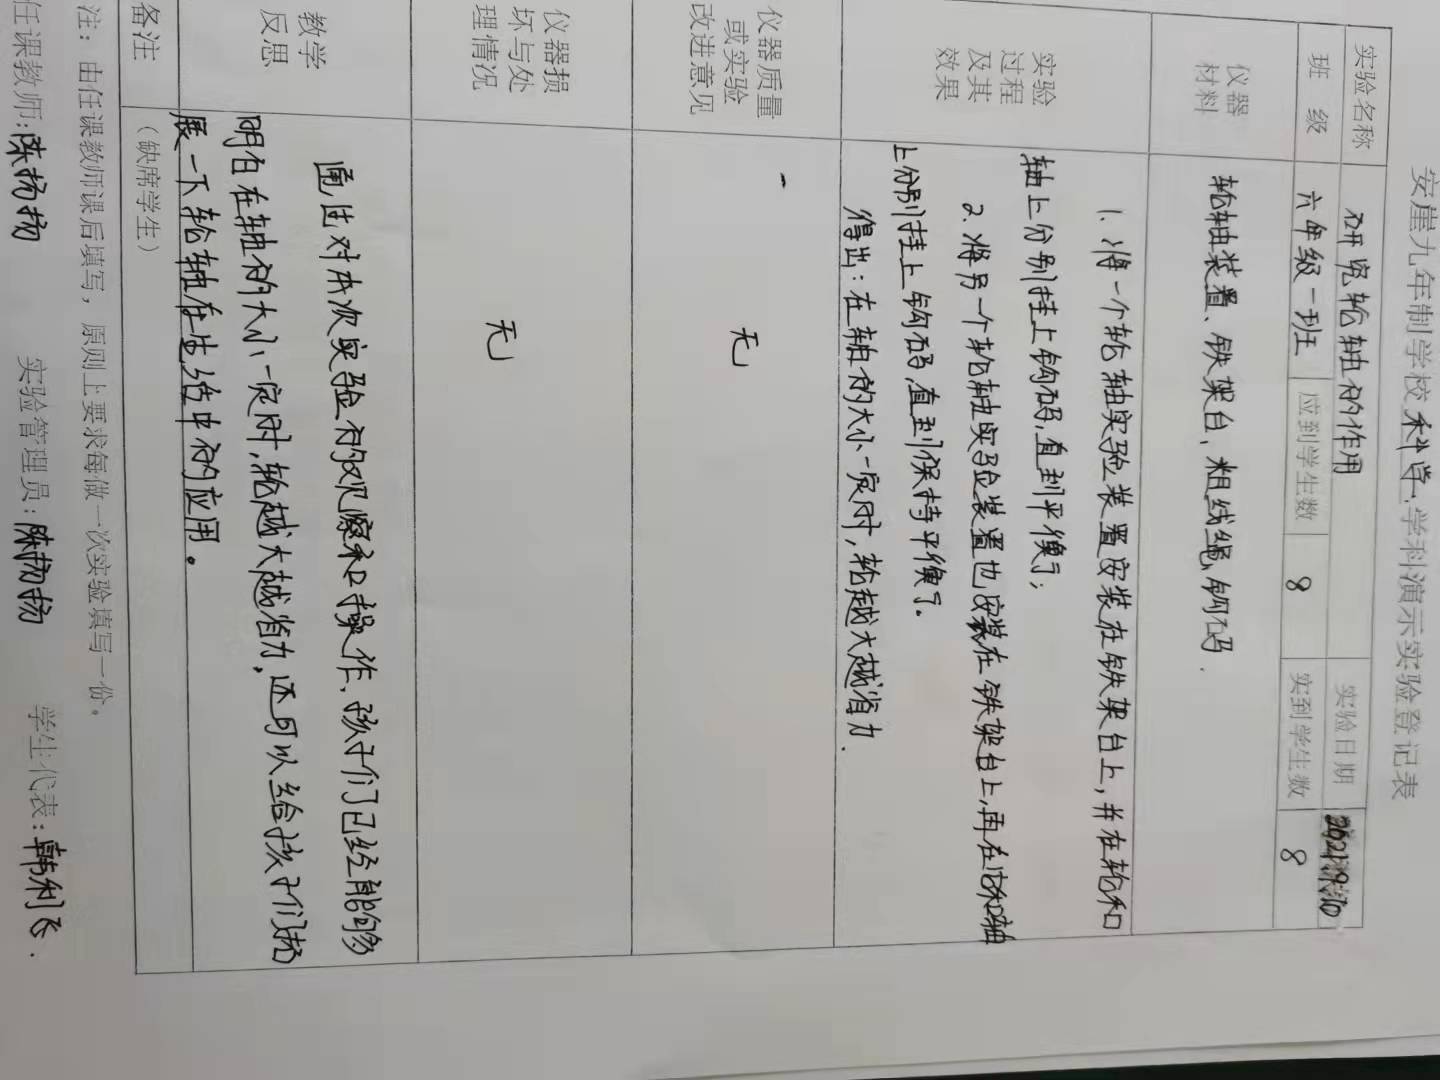 安崖九年制学校科学学科演示实验登记表
实验名称 研究轮轴的作用 实验日期
班 级 六年级一班 应到学生数 8 实到学生数 8
仪器
材料
轮轴装置、铁架台、粗线绳、钩码.
实验
过程
及其
效果
1.将一个轮轴实验装置安装在铁架台上,并在轮和
轴上分别挂上钩码,直到平衡了;
2.将另一个轮轴实验装置也安装在铁架台上,再在轮和轴
上分别挂上钩码,直到保持平衡了.
得出:在轴的大小一定时,轮越大越省力.
仪器质量
或实验
改进意见
无
仪器损
坏与处
理情况
无
教学
反思
通过对本次实验的观察和操作,孩子们已经能够
明白在轴的大小一定时,轮越大越省力,还可以给孩子们扩
展一下轮轴在生活中的应用。
备注 (缺席学生)
注:由任课教师课后填写,原则上要求每做一次实验填写一份。
任课教师:陈扬扬 实验管理员:陈扬扬 学生代表:韩利飞.